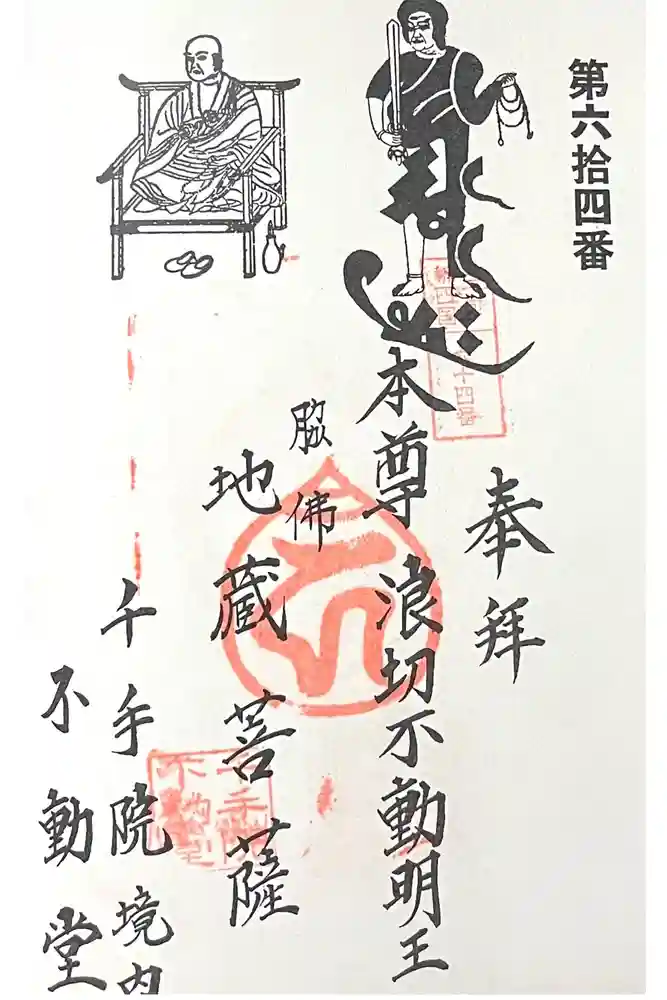 第六拾四番
奉拝
四国
十四番
本尊 浪切不動明王
脇佛
地蔵菩薩
千手院境内
不動堂